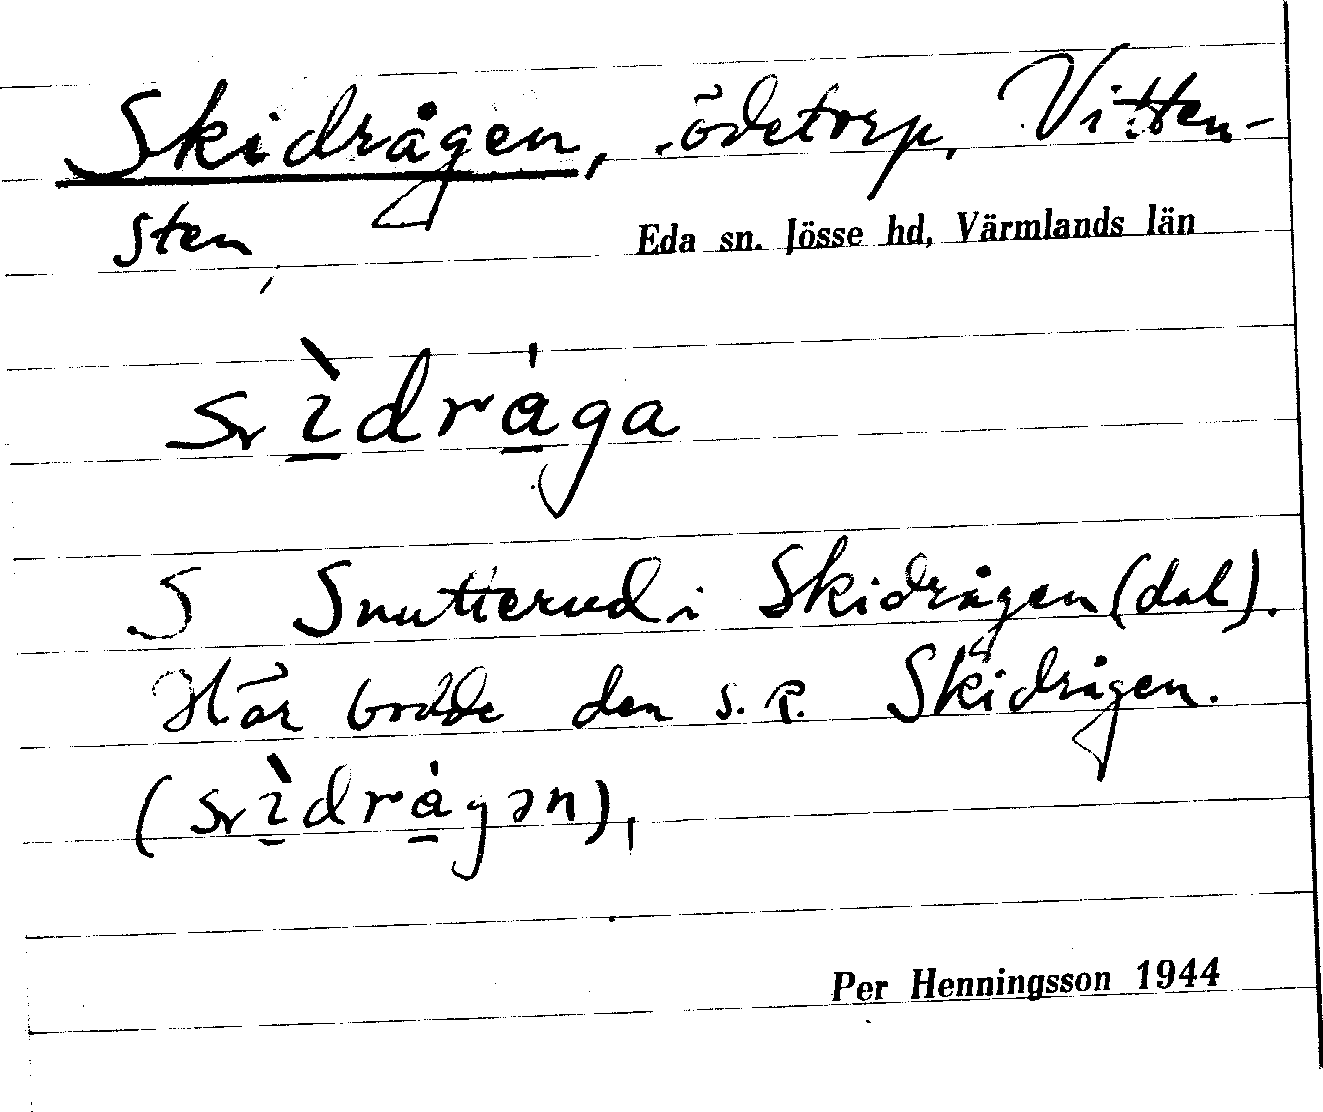 Skidrågen, ödetorp, Vitten-
sten,
Eda sn. Jösse hd, Värmlands län
S Snutterud i Skidrågen (dal).
Här bodde den s. k. Skidrågen.
Per Henningsson 1944